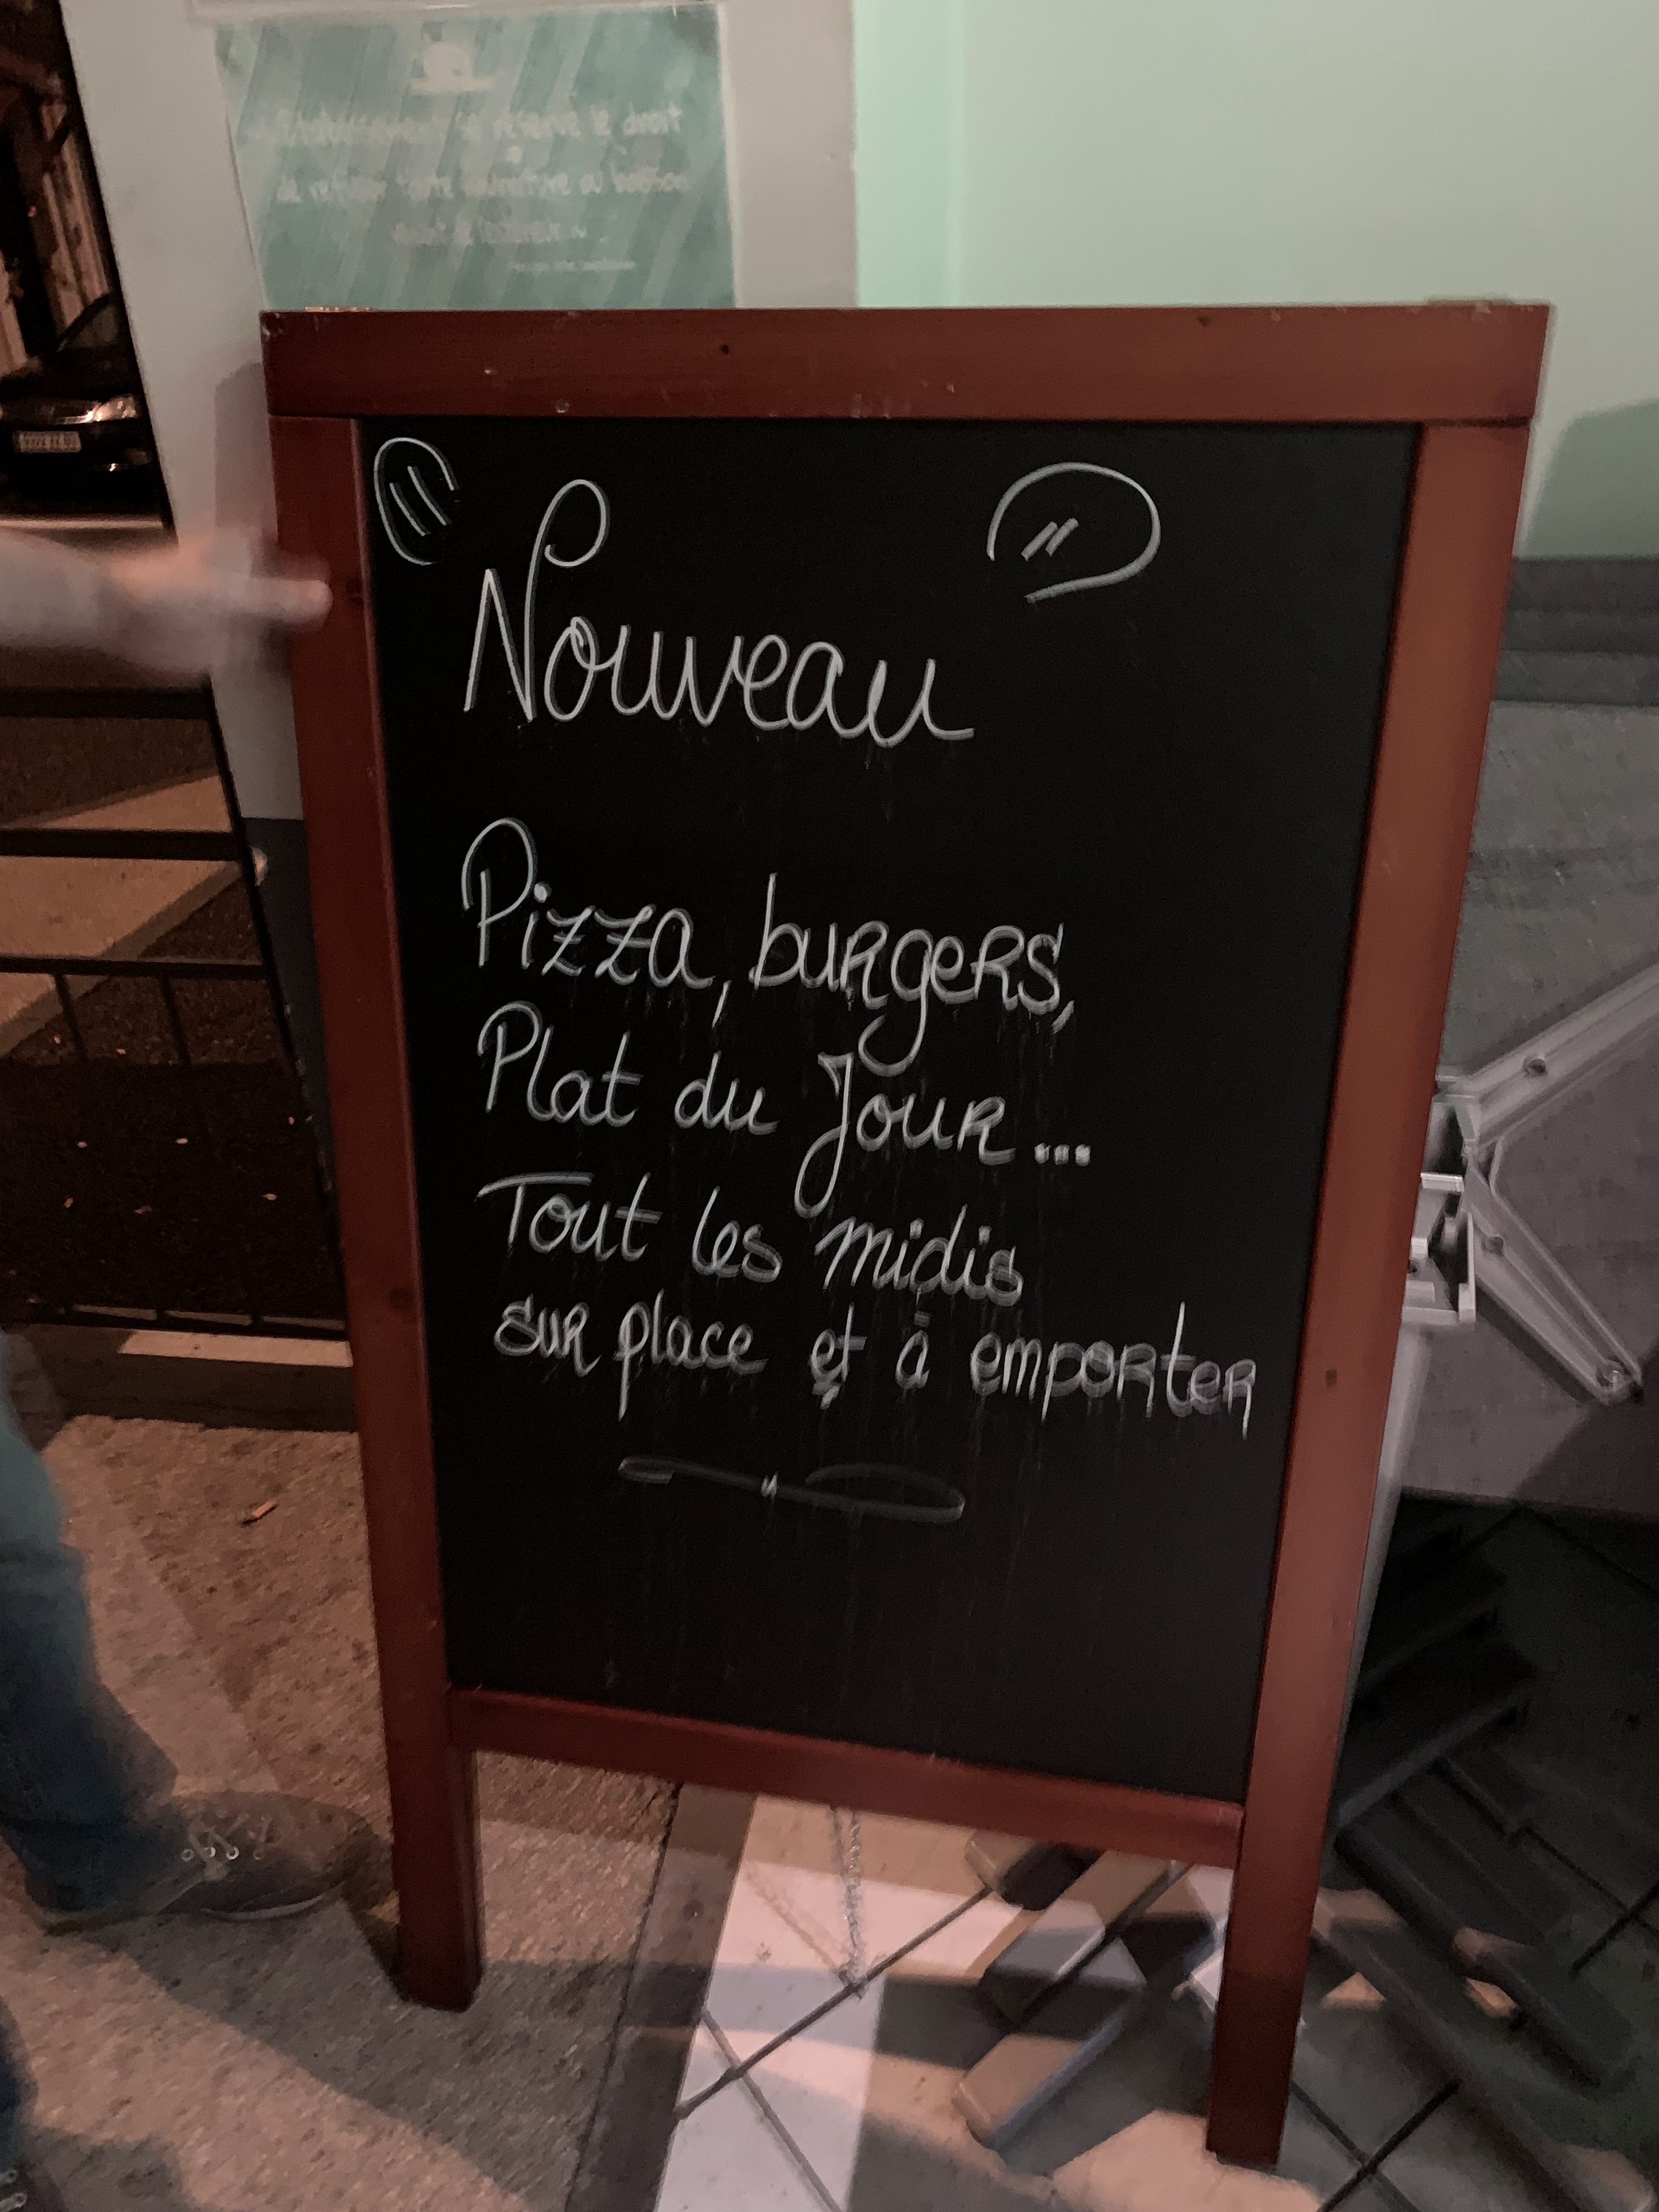 se réserve le droit
de refuser toute
Nouveau
Pizza, burgers,
Plat du Jour...
Tout les midis
sur place et à emporter